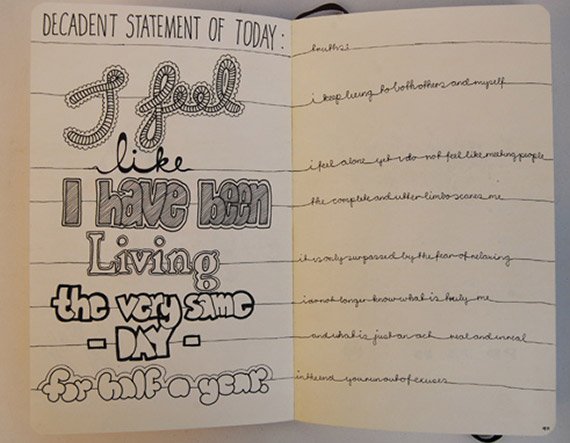 DECADENT STATEMENT OF TODAY:
I feel
like
I have been
Living
the very same
- DAY -
for half a year.
truths:
i keep lying to both others and myself
i feel alone yet i do not feel like meeting people
the complete and utter limbo scares me
it is only surpassed by the fear of relaxing
i do not longer know what is truly me
and what is just an act real and unreal
in the end you run out of excuses